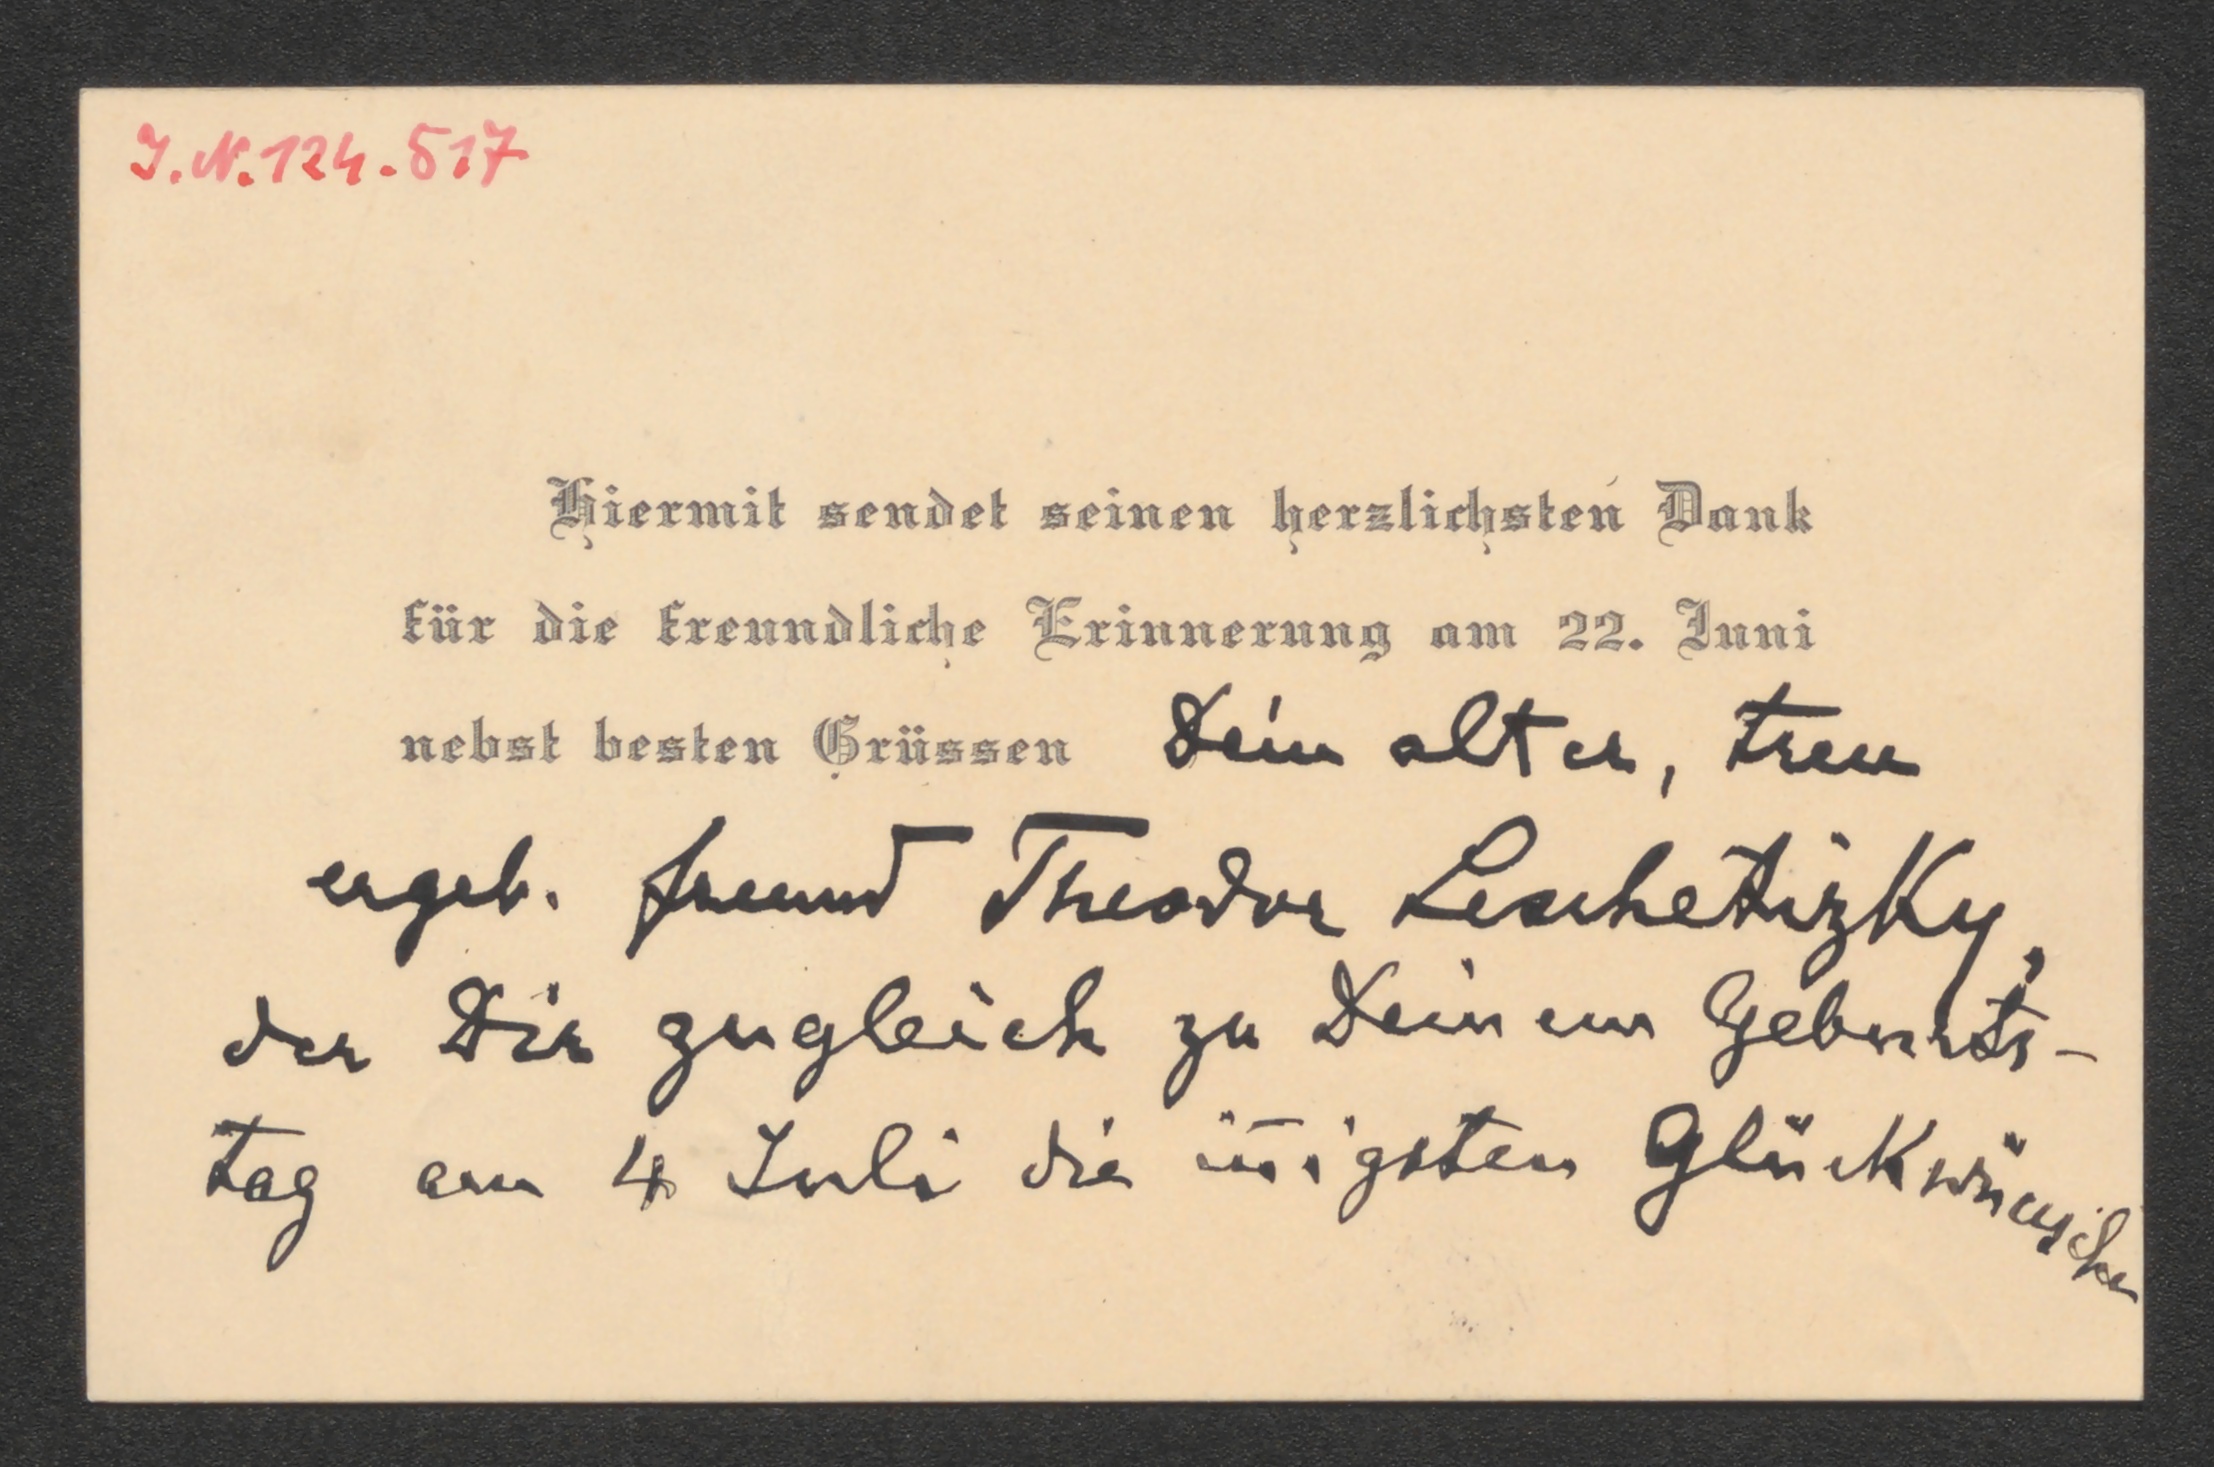 J.N. 124.517
Hiermit sendet seinen herzlichsten Dank
für die freundliche Erinnerung am 22. Juni
nebst besten Grüssen Dein alter, treu
ergeb. Freund Theodor Leschetizky,
der Dir zugleich zu Deinem Geburts-
tag am 4 Juli die iñigsten Glückwünsche